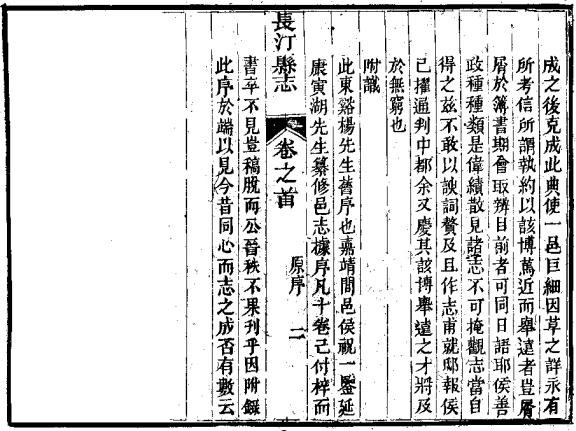 成之後克成此典使一邑巨細因革之詳永有
所考信所謂執約以該博萬近而舉遠者豈屑
屑於簿書期會取辨目前者可同日語耶侯善
政種種類是偉績散見諸志不可掩觀志當自
得之茲不敢以諛詞贅及且作志甫就邸報侯
已擢通判中都余又慶其該博舉遠之才將及
於無窮也
附識
此東谿楊先生舊序也嘉靖間邑侯祝一鑒延
康寅湖先生纂修邑志據序凡十卷已付梓而
長汀縣志 卷之首 原序 二
書卒不見豈稿脫而公晉秩不果刊乎因附錄
此序於端以見今昔同心而志之成否有數云